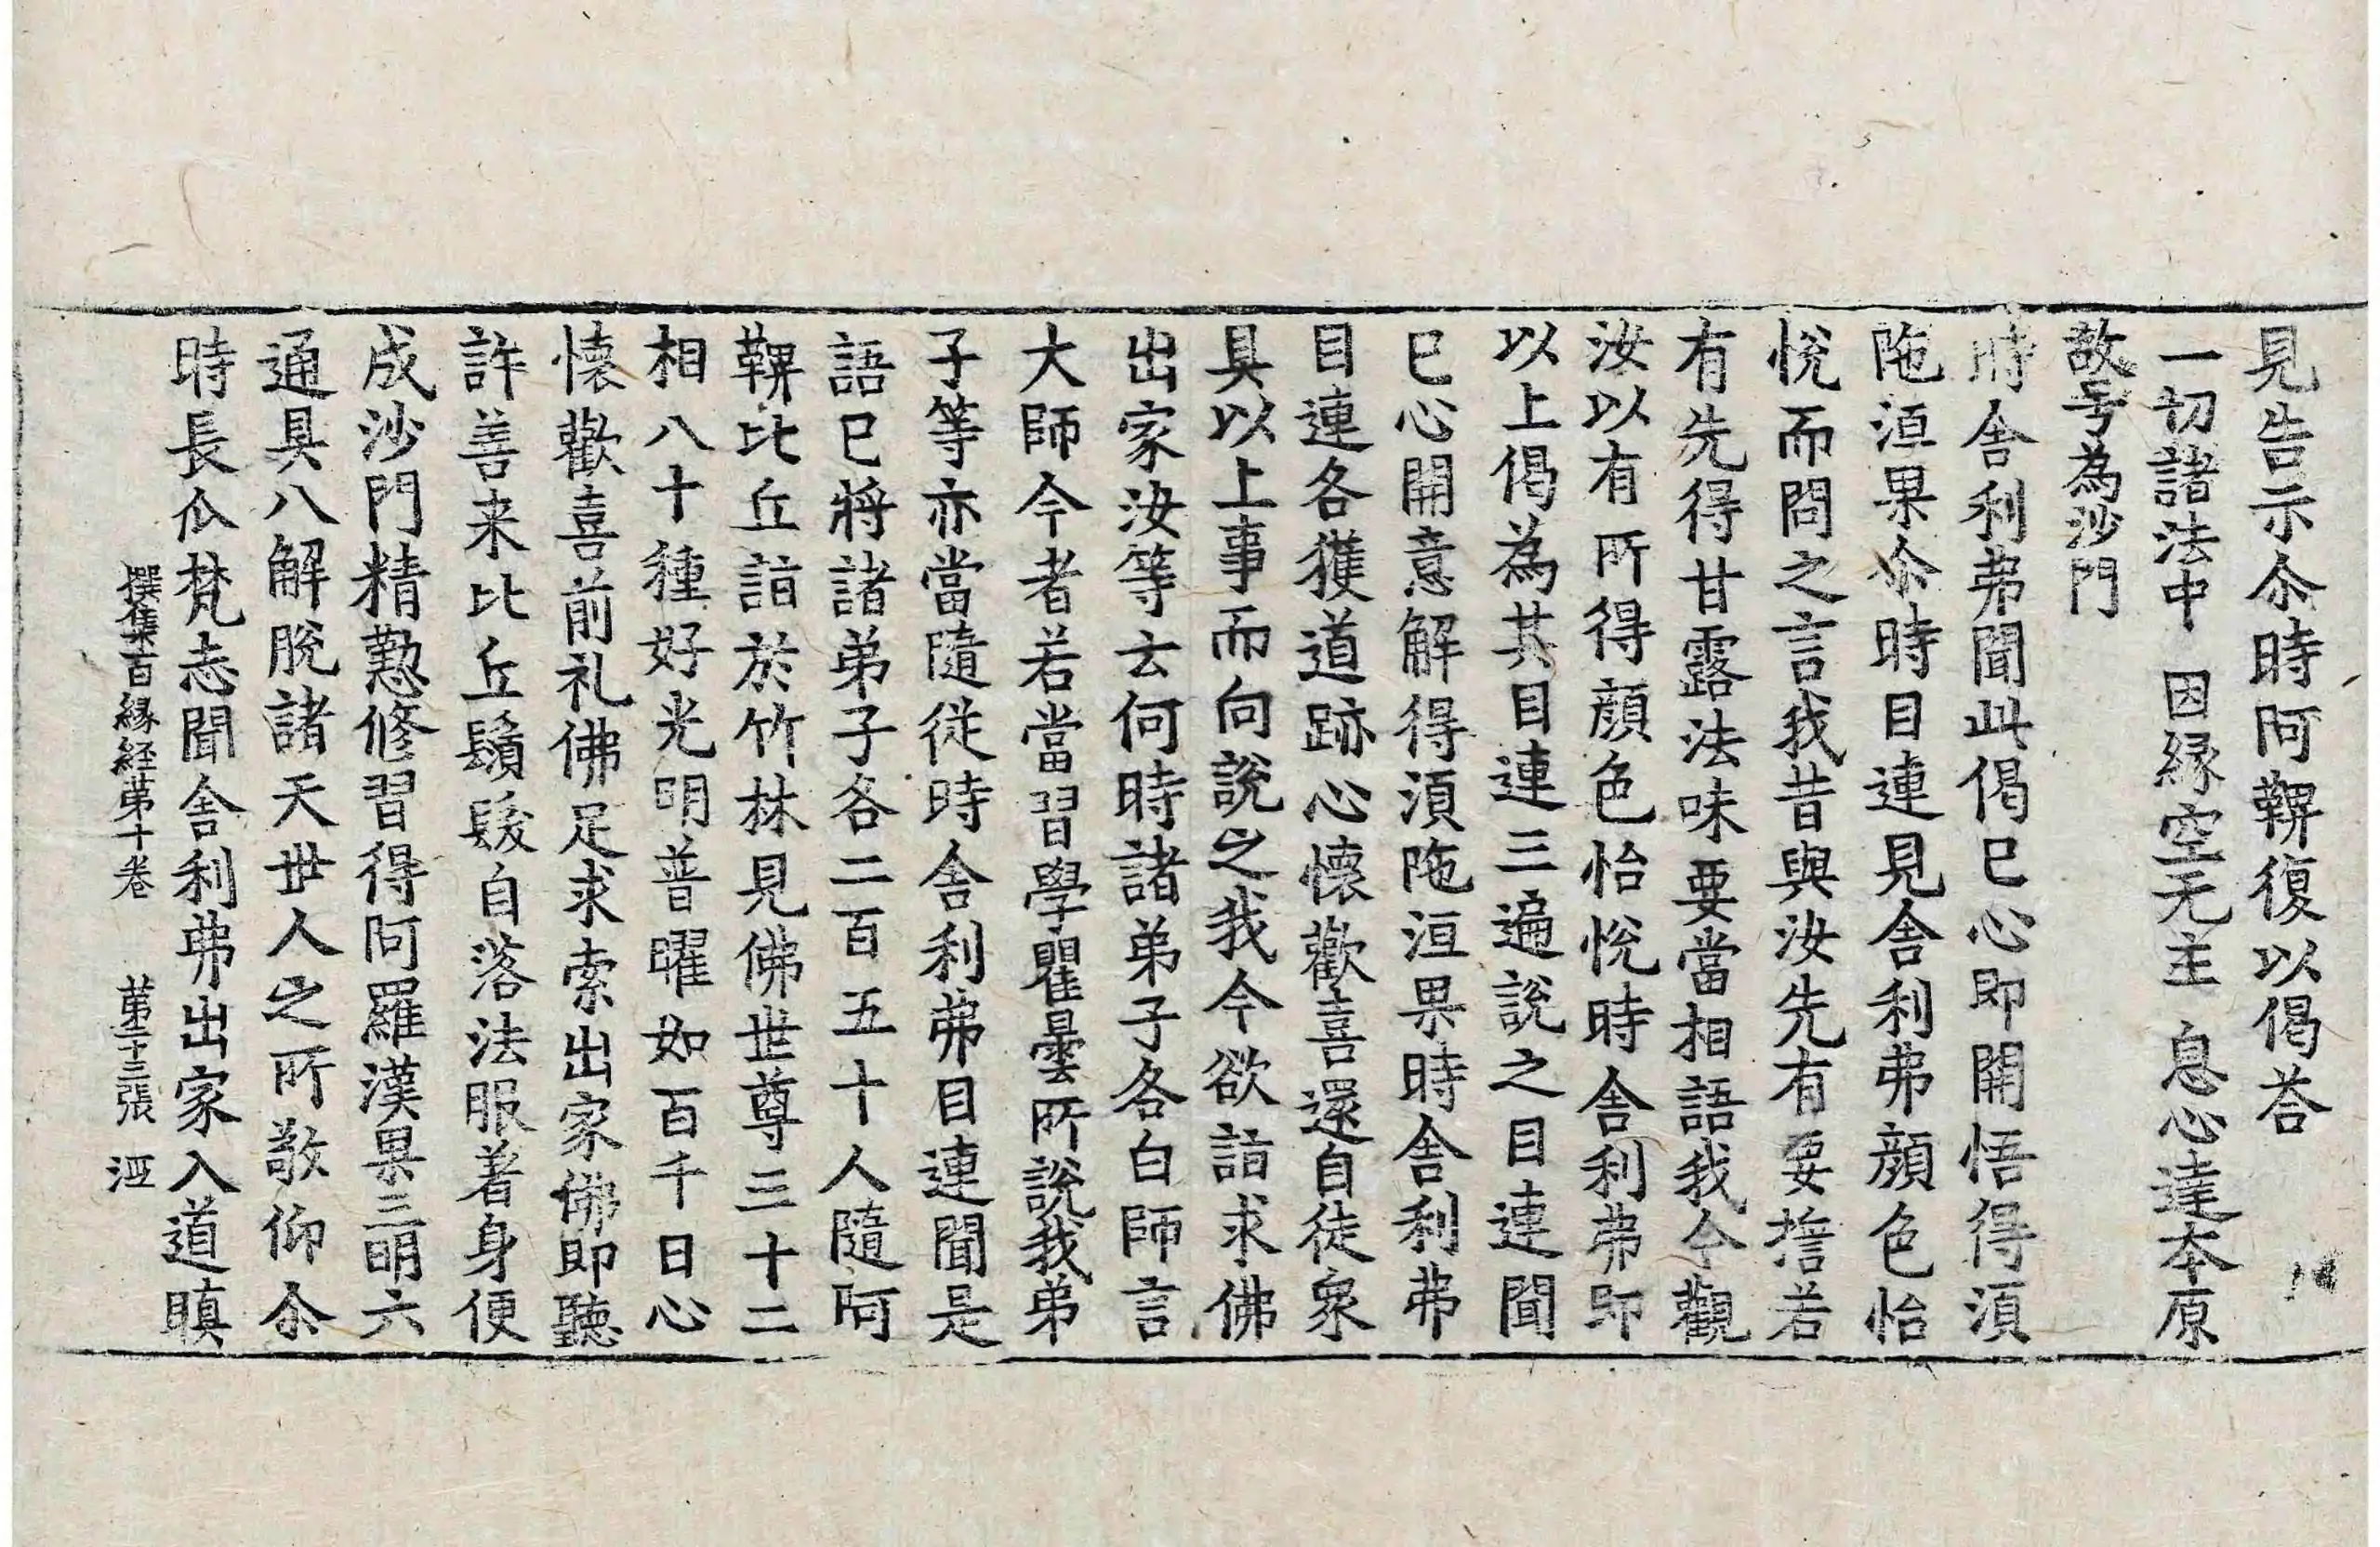 見告示尒時阿鞞復以偈荅
一切諸法中 因緣空无主 息心達本原
故号為沙門
時舍利弗聞此偈已心即開悟得須
陁洹果尒時目連見舍利弗顔色怡
悅而問之言我昔與汝先有要擔若
有先得甘露法味要當相語我今觀
汝以有所得顔色怡悅時舍利弗即
以上偈為其目連三遍說之目連聞
已心開意解得須陁洹果時舍利弗
目連各獲道跡心懷歡喜還自徒衆
具以上事而向說之我今欲詣求佛
出家汝等云何時諸弟子各白師言
大師今者若當習學瞿曇所說我弟
子等亦當隨從時舍利弗目連聞是
語已將諸弟子各二百五十人隨阿
鞞比丘詣於竹林見佛世尊三十二
相八十種好光明普曜如百千日心
懷歡喜前礼佛足求索出家佛即聽
許善来比丘鬚髮自落法服著身便
成沙門精懃修習得阿羅漢果三明六
通具八解脫諸天世人之所敬仰尒
時長爪梵志聞舍利弗出家入道瞋
撰集百緣経苐十卷 苐二十三張 洍